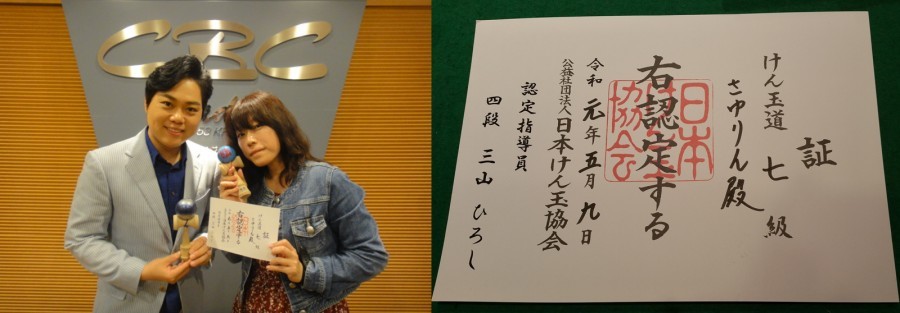 CBC
証
けん玉道 七 級
さゆりん殿
右認定する
日本
協会
令和元年五月九日
公益社団法人 日本けん玉協会
認定指導員
四段 三山 ひろし